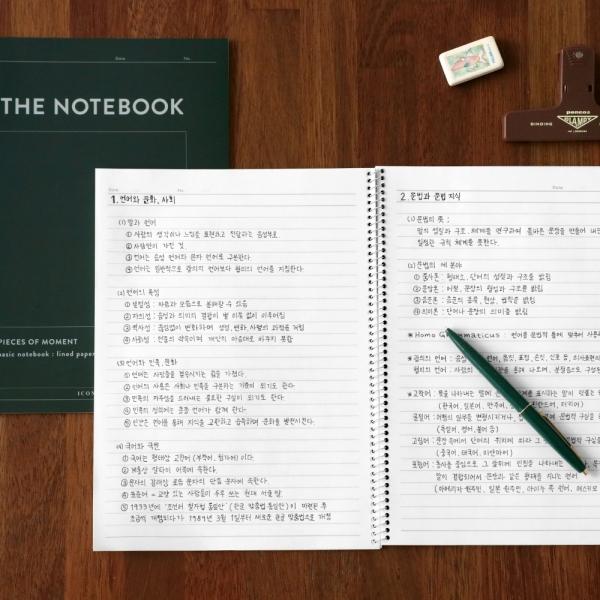 Date
No.
THE NOTEBOOK
PIECES OF MOMENT
basic notebook : lined paper
ICON
Date No.
1. 언어와 문화, 사회
(1) 말과 언어
① 사람의 생각이나 느낌을 표현하고 전달하는 음성부호.
② 사람만이 가진 것.
③ 언어는 음성 언어와 문자 언어로 구분한다.
④ 언어는 일반적으로 광의의 언어보다 협의의 언어를 지칭한다.
(2) 언어의 특성
① 분절성 : 자음과 모음으로 분해할 수 있음
② 자의성 : 음성과 의미의 결합이 별 이유 없이 이루어짐
③ 역사성 : 끊임없이 변화하며 생성, 변화, 사멸의 과정을 거침
④ 사회성 : 언중의 약속이며 개인이 마음대로 바꾸지 못함
(3) 언어와 민족, 문화
① 언어는 사람들을 결속시키는 힘을 가졌다.
② 언어의 사용은 사회나 민족을 구분하는 기준이 되기도 한다.
③ 민족의 자주성을 드러내는 중요한 구실이 되기도 한다.
④ 민족의 정의에는 공통 언어가 함께 한다.
⑤ 인간은 언어를 통해 지식을 교환하고 습득하며 문화를 발전시킨다.
(4) 국어와 국문
① 국어는 형태상 교착어 (부착어, 첨가어) 이다.
② 계통상 알타이 어족에 속한다.
③ 문자의 갈래상 표음 문자의 단음 문자에 속한다.
④ 표준어 = 교양 있는 사람들이 두루 쓰는 현대 서울말.
⑤ 1933년에 '조선어 철자법 통일안' (한글 맞춤법 통일안) 이 마련된 후
조금씩 개정되다가 1989년 3월 1일부터 새로운 한글 맞춤법으로 개정
Date
2. 문법과 문법 지식
(1) 문법의 뜻 :
말의 성질과 구조, 체계를 연구하여 올바른 문장을 만들어 내는
일정한 규칙 체계를 뜻한다.
(2) 문법의 세 분야
① 품사론 : 형태소, 단어의 성질과 구조를 밝힘
② 문장론 : 어절, 문장의 형성과 구조를 밝힘
③ 음운론 : 음운의 종류, 현상, 법칙을 밝힘
④ 의미론 : 단어나 문장의 의미를 밝힘
* Homo Grammaticus : 언어를 문법적 틀에 맞추어 사용
* 광의의 언어 : 음성 언어, 몸짓, 표정, 손짓, 신호 등
협의의 언어 : 사람의 을 통해 나오며, 분절음으로 구성
* 교착어 : 뜻을 나타내는 말에 를 표시하는 말이 있는
(한국어, 일본어, 만주어, 터키어)
굴절어 : 어형의 일부를 변형시키거나, 문법적 구실을
(독일어, 영어, 불어 등)
고립어 : 문장 속에서 단어의 위치에 따라 그 문법적 구실을
(중국어, 태국어, 미얀마어)
포합어 : 동사를 중심으로 그 앞뒤에 인칭을 나타내는
말이 결합되어서 문장과 같은 형태를 지니는 언어
(아메리카 원주민, 일본 원주민, 아이누 족 언어, 에스키모
penco
CLAMPY
BINDING